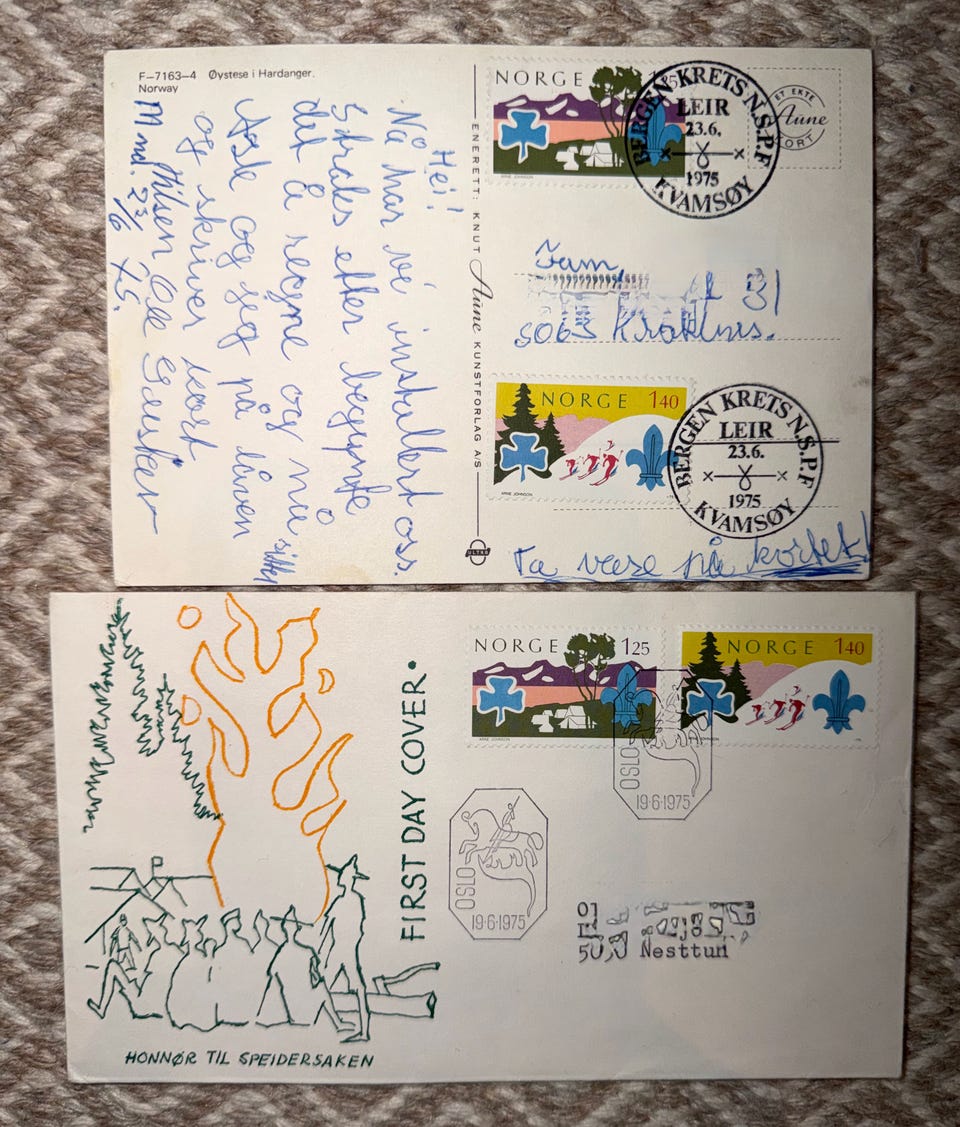 F–7163–4 Øystese i Hardanger.
Norway
Hei!
Nå har vi installert oss.
Straks etter begynte
det å regne og nu sitter
og jeg på låven
og skriver kort
Hilsen
M md. 23/6 75.
ENERETT: KNUT Aune KUNSTFORLAG A/S
ULTRA
NORGE
ARNE JOHNSON
BERGEN KRETS N.S.P.F
LEIR
23.6.
1975
KVAMSØY
ET EKTE
Aune
KORT
Fam.
5063
NORGE 140
ARNE JOHNSON
BERGEN KRETS N.S.P.F
LEIR
23.6.
1975
KVAMSØY
Ta vare på kortet!
FIRST DAY COVER.
HONNØR TIL SPEIDERSAKEN
NORGE 125
ARNE JOHNSON
NORGE 140
ARNE JOHNSON
OSLO
19·6·1975
OSLO
19·6·1975
Nesttun